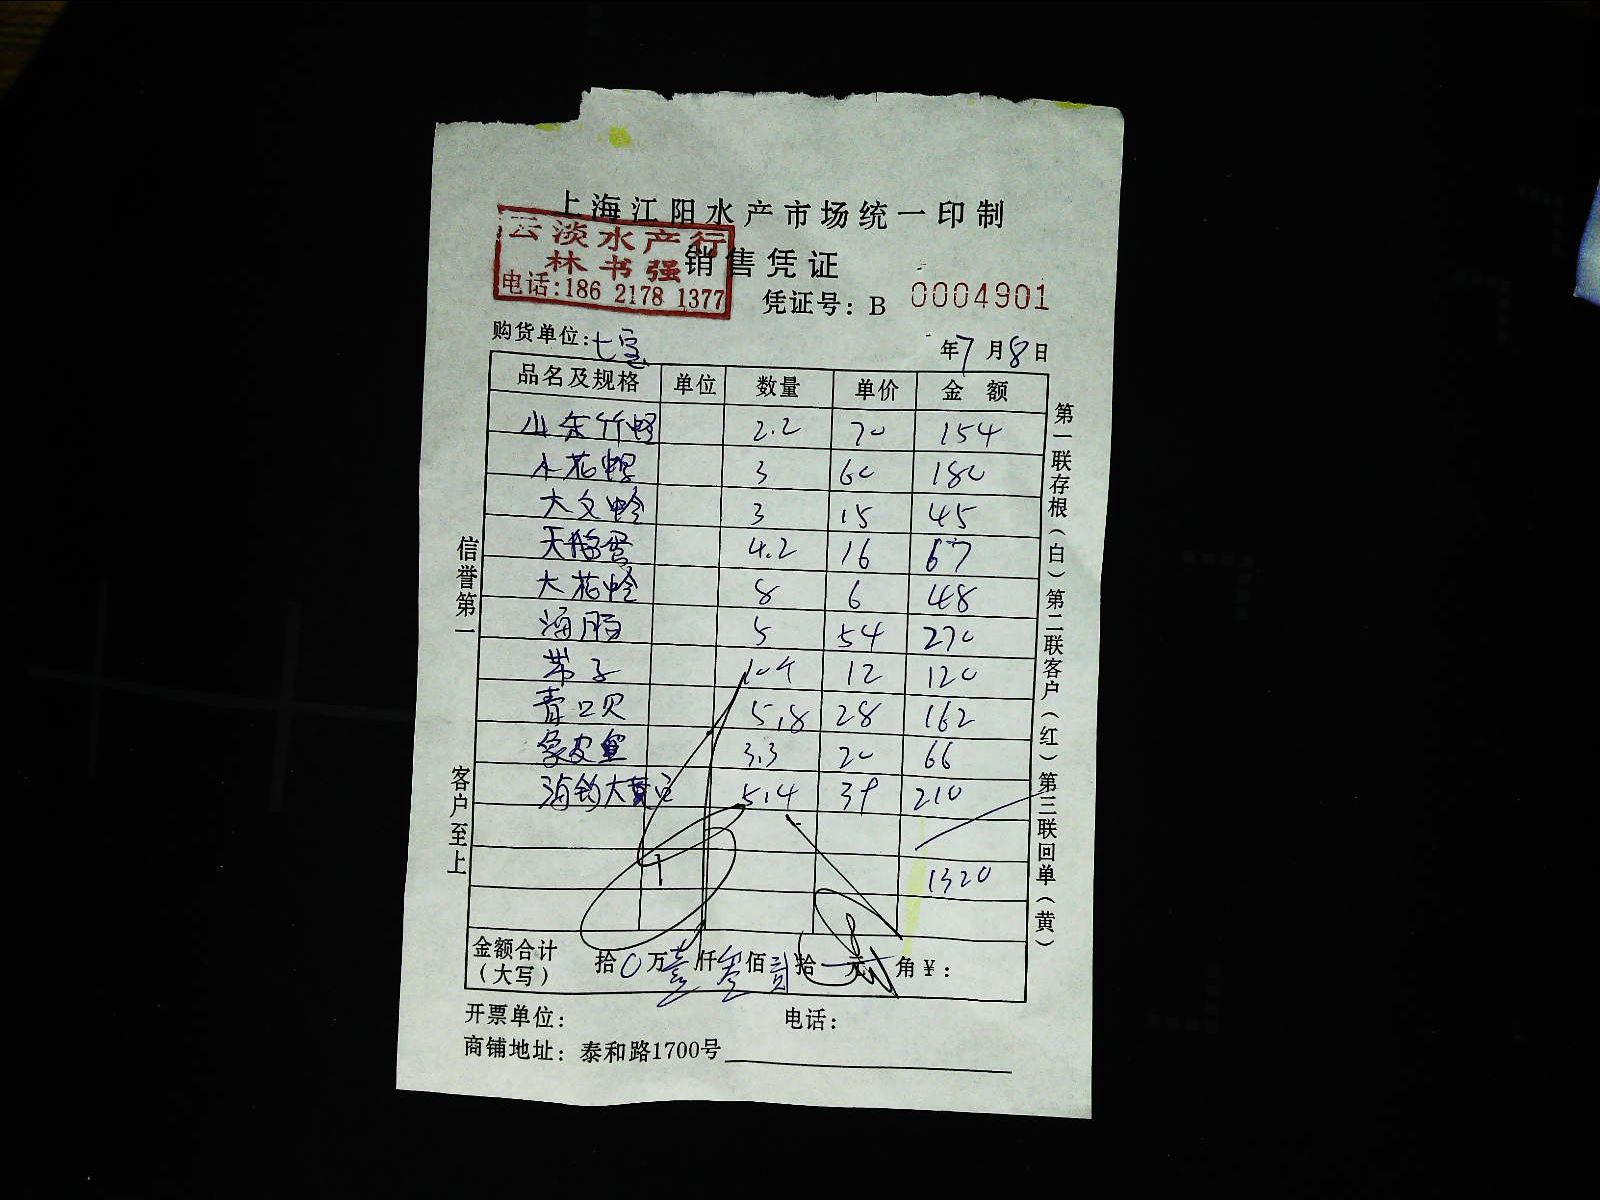 上海江阳水产市场统一印制
云淡水产行
林书强
电话:186 2178 1377
销售凭证
凭证号: B 0004901
购货单位:七宝
年7月8日
品名及规格 单位 数量 单价 金额
山东竹蛏 2.2 70 154
小花螺 3 60 180
大文蛤 3 15 45
天鹅蛋 4.2 16 67
大花蛤 8 6 48
海肠 5 54 270
带子 10个 12 120
青口贝 5.8 28 162
象皮 3.3 20 66
海钓大黄 5.4 39 210
1320
金额合计
(大写)
拾0万壹仟叁佰贰拾 元 角¥:
开票单位:
电话:
商铺地址: 泰和路1700号
信誉第一
客户至上
第一联存根(白)第二联客户(红)第三联回单(黄)